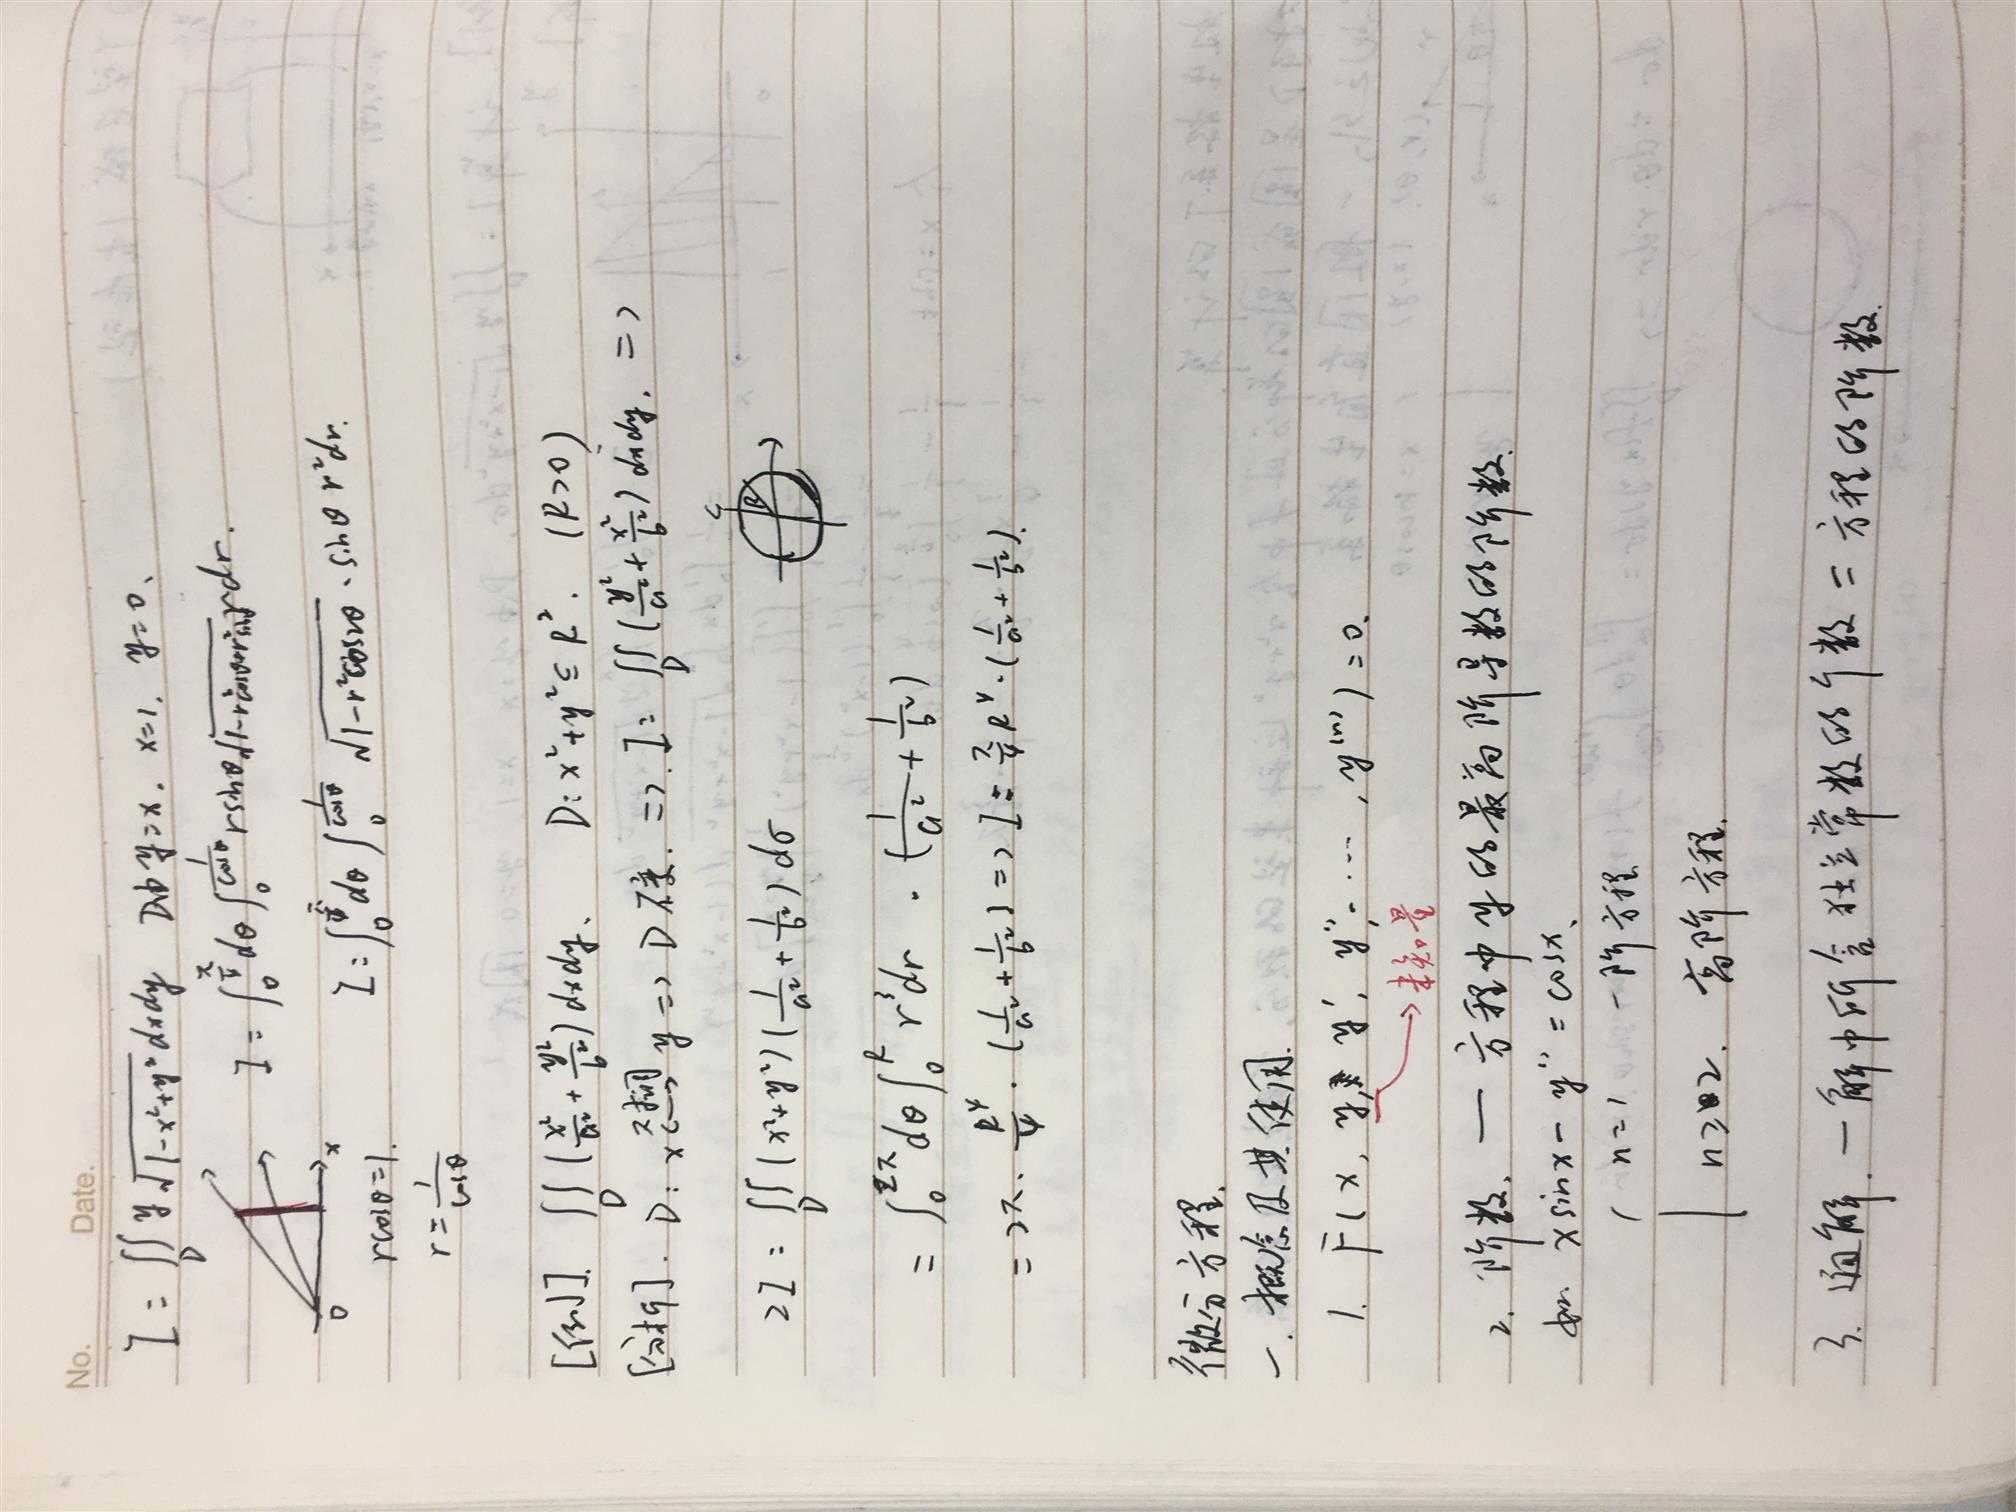 No. Date.
I = ∬_D y√(1-x²+y²) dxdy D由 y=x. x=1. y=0.
I = ∫_0^{π/4} dθ ∫_0^{1/cosθ} rsinθ
x
0
I = ∫_0^{π/4} dθ ∫_0^{1/cosθ} √(1-r²cos2θ) · sinθ r²dr.
rcosθ=1.
r = 1/cosθ
[例]. ∬_D (x²/a² + y²/b²) dxdy. D: x²+y² ≤ R². (R>0)
[分析]. D: x ←互换→ y => D 不变. =>. I = ∬_D (y²/a² + x²/b²) dxdy. =>
2I = ∬_D (x²+y²)(1/a² + 1/b²) dσ
R
= ∫_0^{2π} dθ ∫_0^R r³dr · (1/a² + 1/b²)
= 2π · R⁴/4 · (1/a² + 1/b²) => I = π/4 R⁴ · (1/a² + 1/b²).
微分方程.
一. 概念及其使用.
1. F(x, y, y', y'', ..., y⁽ⁿ⁾) = 0.
2. 阶数. — 方程中 的最高阶导数的阶数.
如. xsinx - y'' = cosx.
n=1 一阶方程
n≥2. 高阶方程.
3. 通解. — 解中所含独立常数的个数 = 方程的阶数.